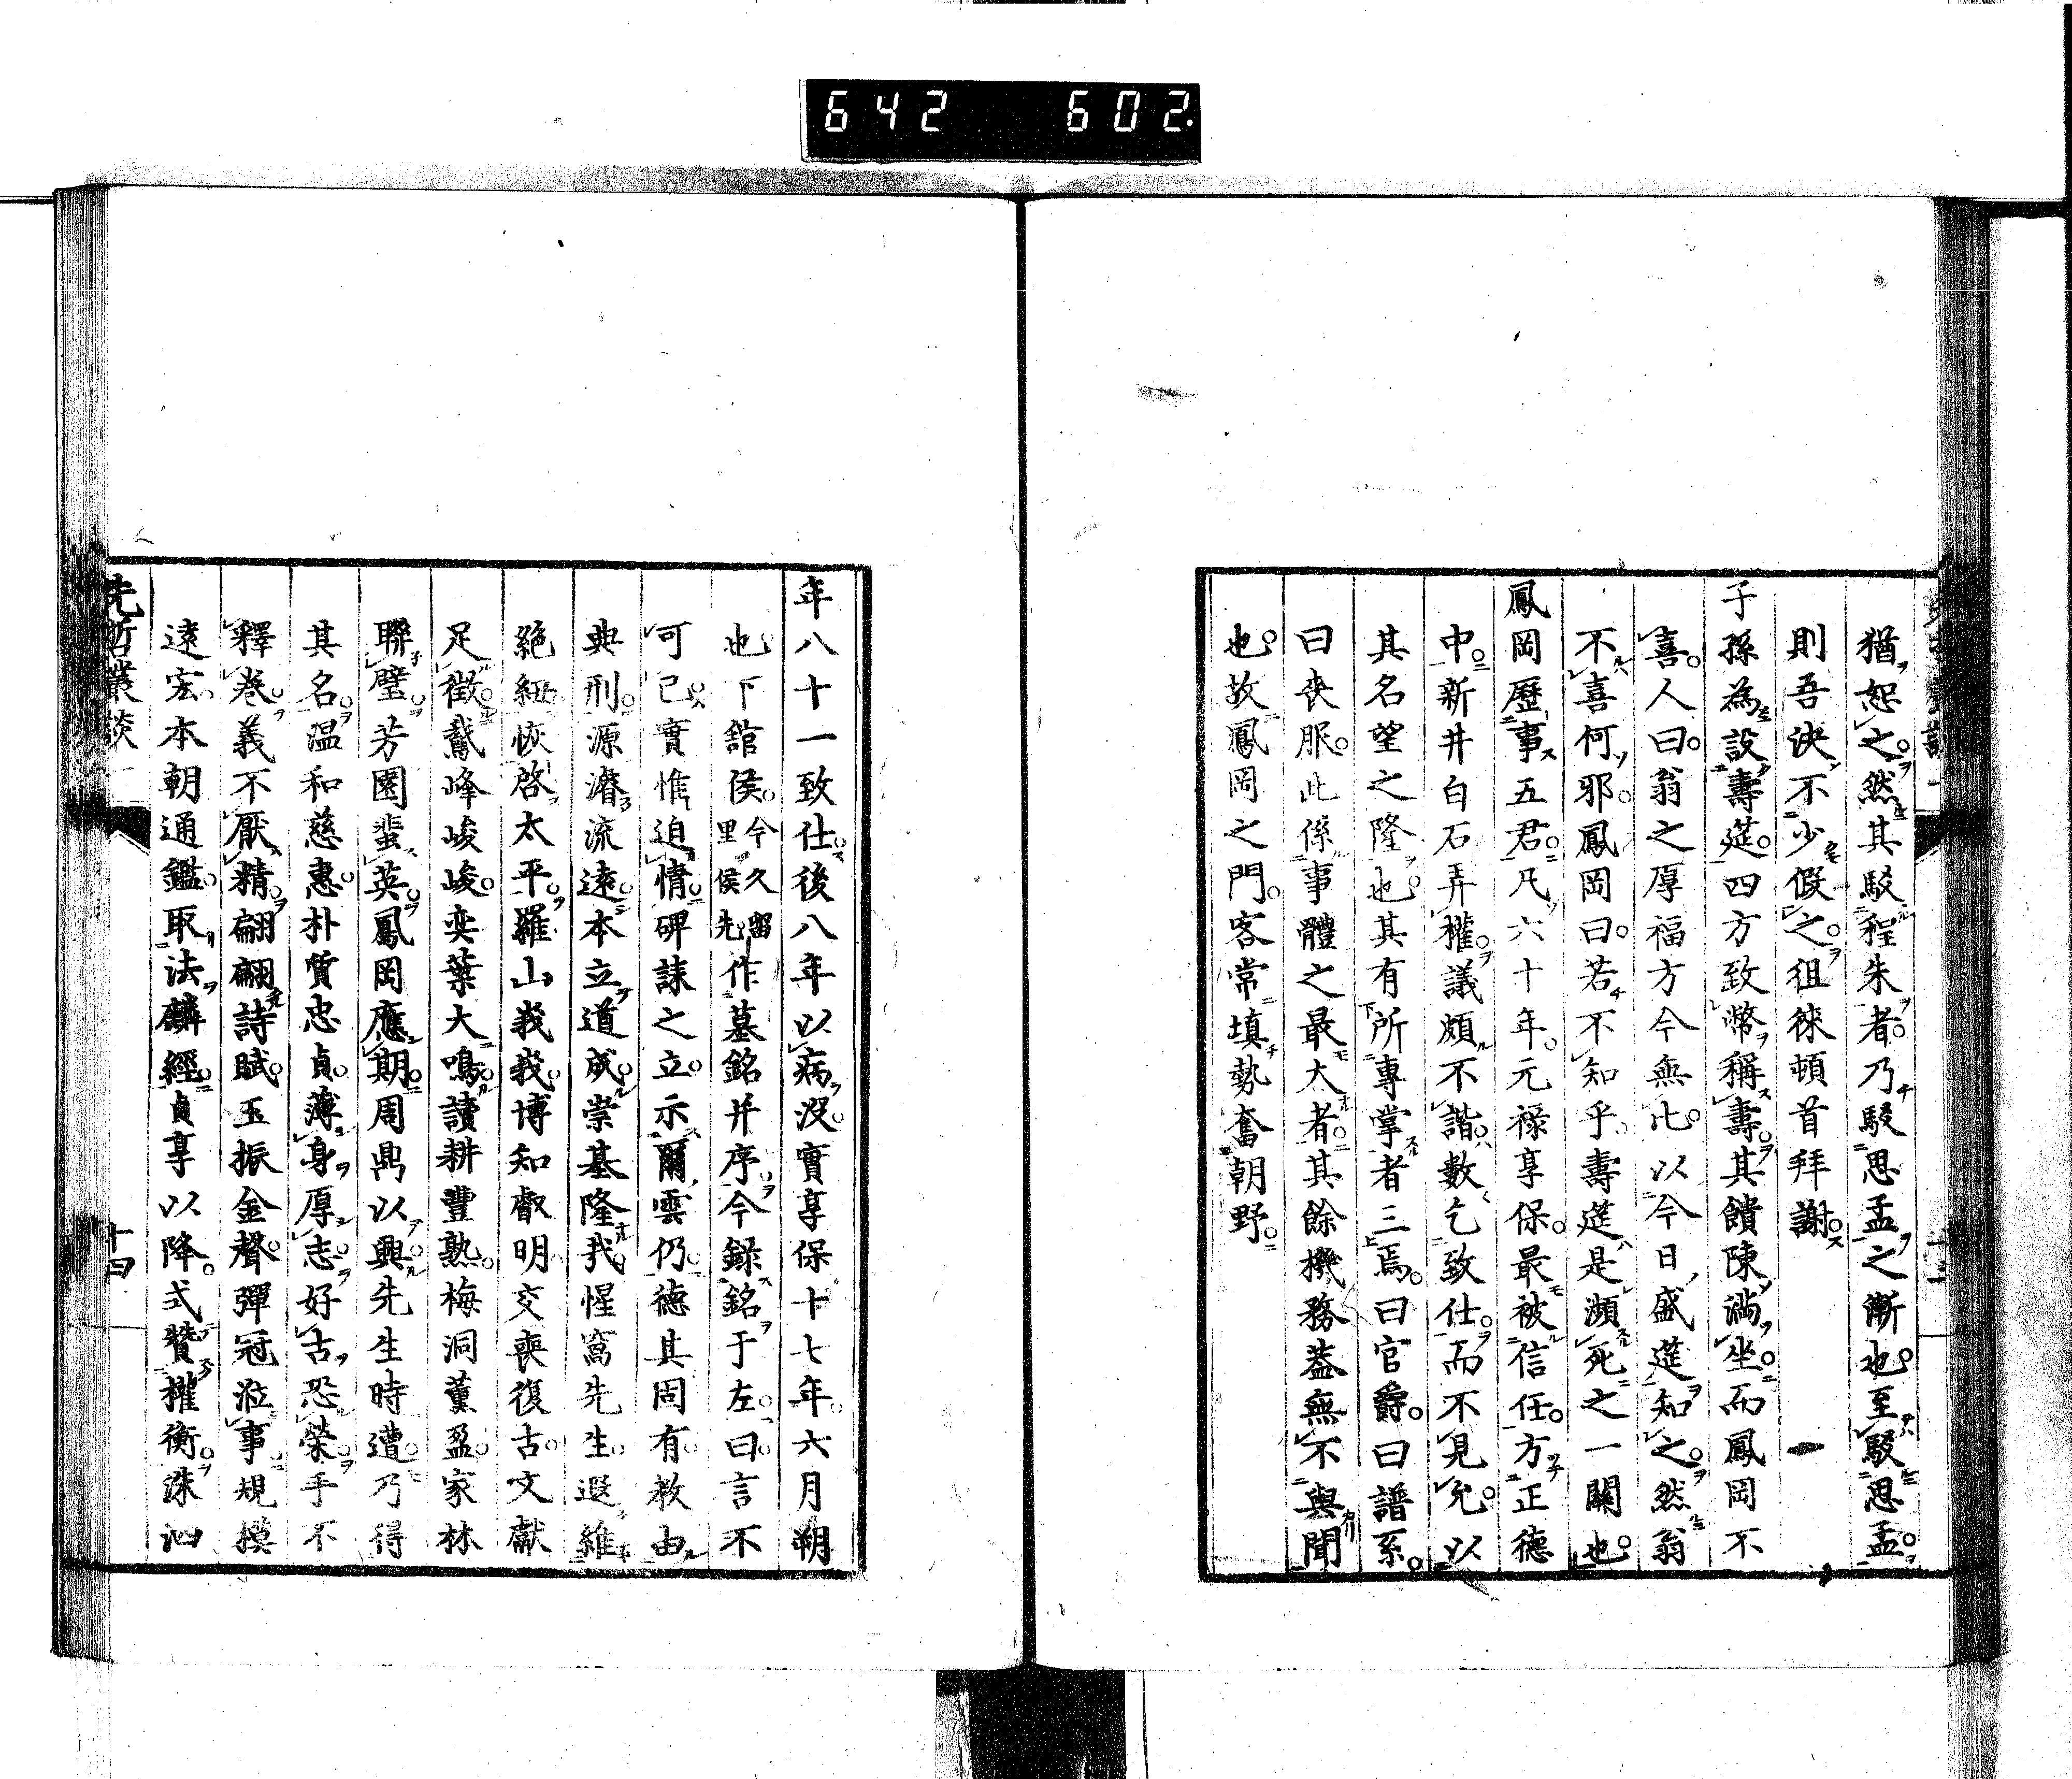 642 602.
猶恕之然其駁程朱者乃駁思孟之漸也至駁思孟
則吾決不少假之徂徠頓首拜謝
子孫為設壽筵四方致幣稱壽其饋陳滿坐而鳳岡不
喜人曰翁之厚福方今無比以今日盛筵知之然翁
不喜何邪鳳岡曰若不知乎壽筵是瀕死之一關也
鳳岡歷事五君凡六十年元祿享保最被信任方正德
中新井白石弄權議頗不諧數乞致仕而不見允以
其名望之隆也其有所專掌者三焉曰官爵曰譜系
曰喪服此係事體之最大者其餘機務葢無不與聞
也故鳳岡之門客常填勢奮朝野
年八十一致仕後八年以病沒實享保十七年六月朔
也下館侯今久留里侯先作墓銘并序今錄銘于左曰言不
可已實惟迫情碑誄之立示爾雲仍德其固有教由
典刑源濬流遠本立道成崇基隆我惺窩先生遐維
絕紐恢啓太平羅山峩峩博知叡明交喪復古文獻
足徵鵞峰峻峻奕葉大鳴讀耕豐熟梅洞薰盈家林
聯璧芳園蜚英鳳岡應期周鼎以興先生時遭乃得
其名溫和慈惠朴質忠貞薄身厚志好古恐榮手不
釋卷義不厭精翩翩詩賦玉振金聲彈冠涖事規摸
遠宏本朝通鑑取法麟經貞享以降式贊權衡洙泗
先哲叢談 一 十四